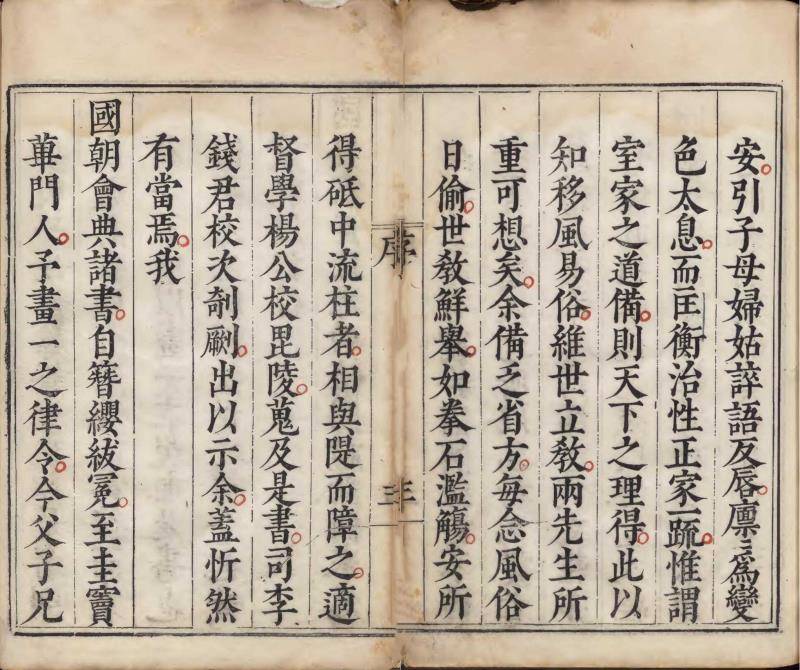 安引子母婦姑誶語反唇廩〻爲變
色太息而匡衡治性正家一疏惟謂
室家之道備則天下之理得此以
知移風易俗維世立敎兩先生所
重可想矣余備乏省方每念風俗
日偷世敎鮮舉如拳石濫觴安所
序
三
得砥中流柱者相與隄而障之適
督學楊公校毘陵蒐及是書司李
錢君校次剞劂出以示余蓋忻然
有當焉我
國朝會典諸書自簪纓紱冕至圭竇
蓽門人予畫一之律令令父子兄